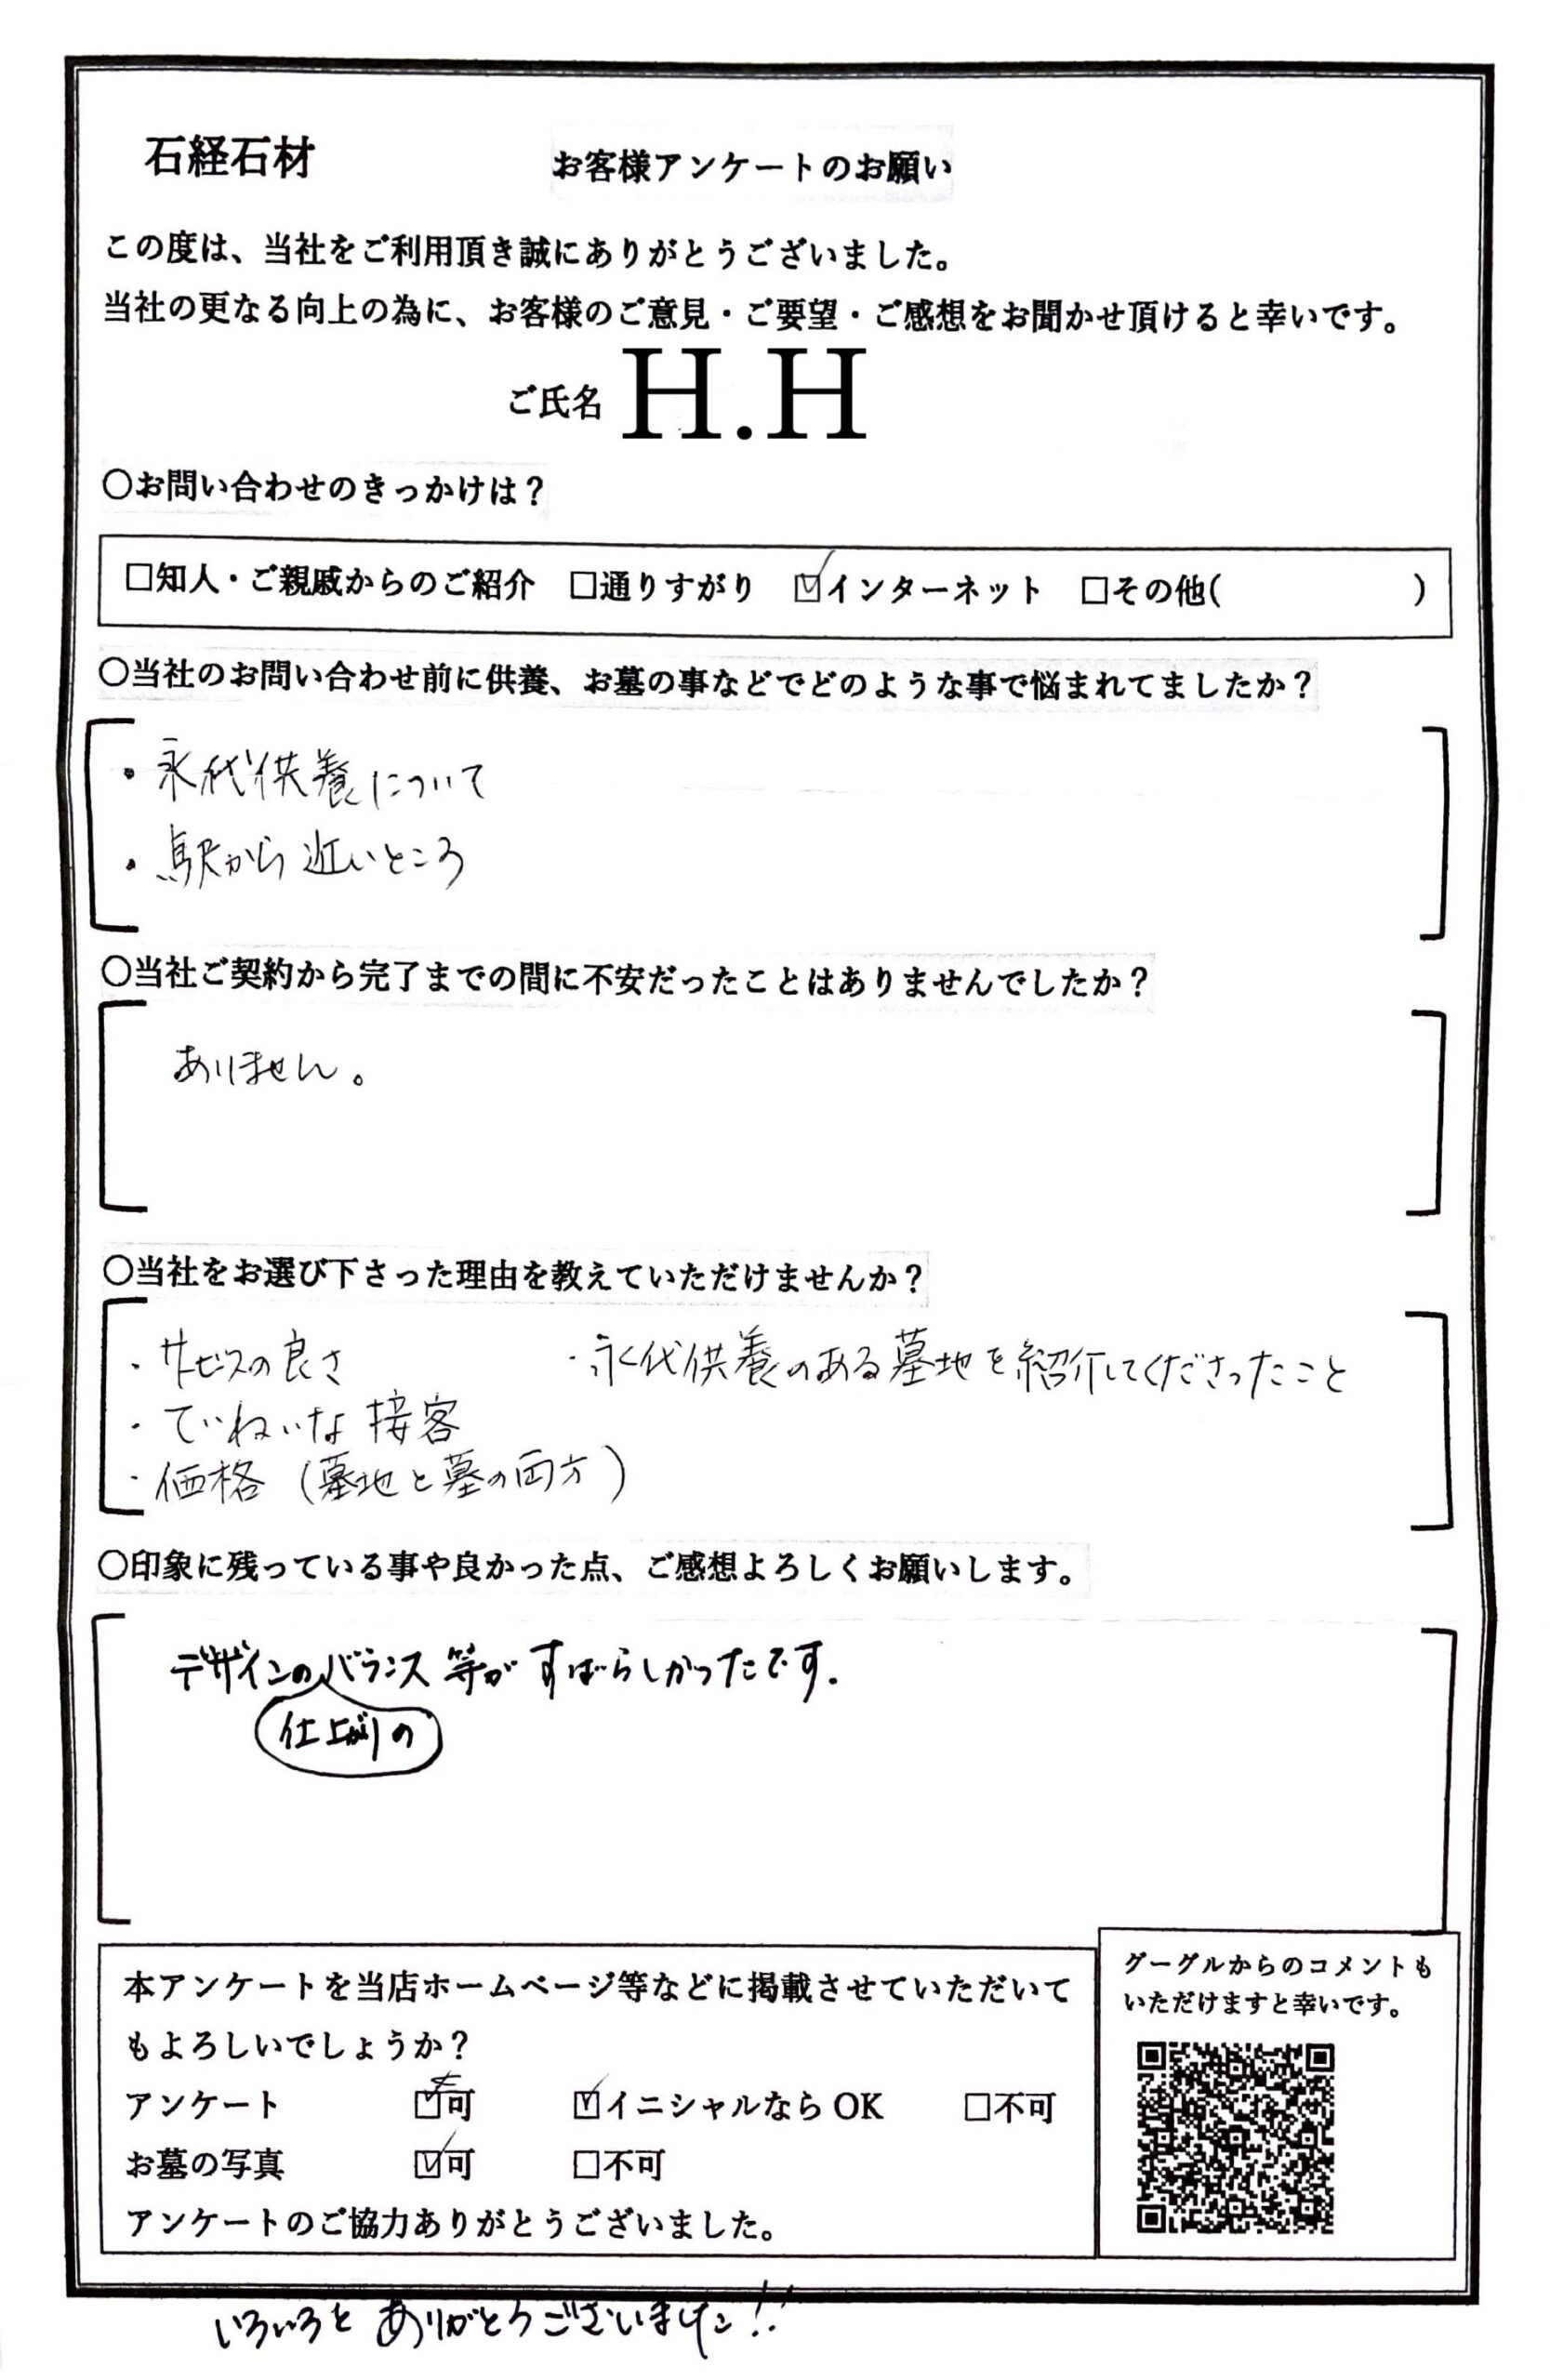 石経石材 お客様アンケートのお願い
この度は、当社をご利用頂き誠にありがとうございました。
当社の更なる向上の為に、お客様のご意見・ご要望・ご感想をお聞かせ頂けると幸いです。
ご氏名 H.H
〇お問い合わせのきっかけは？
□知人・ご親戚からのご紹介 □通りすがり ☑インターネット □その他( )
〇当社のお問い合わせ前に供養、お墓の事などでどのような事で悩まれてましたか？
・永代供養について
・駅から近いところ
〇当社ご契約から完了までの間に不安だったことはありませんでしたか？
ありません。
〇当社をお選び下さった理由を教えていただけませんか？
・サービスの良さ ・永代供養のある墓地を紹介してくださったこと
・ていねいな接客
・価格（墓地と墓の両方）
〇印象に残っている事や良かった点、ご感想よろしくお願いします。
デザインのバランス等がすばらしかったです.
仕上がりの
本アンケートを当店ホームページ等などに掲載させていただいて
もよろしいでしょうか？
アンケート ☑可 ☑イニシャルなら OK □不可
お墓の写真 ☑可 □不可
アンケートのご協力ありがとうございました。
グーグルからのコメントも
いただけますと幸いです。
いろいろとありがとうございました!!